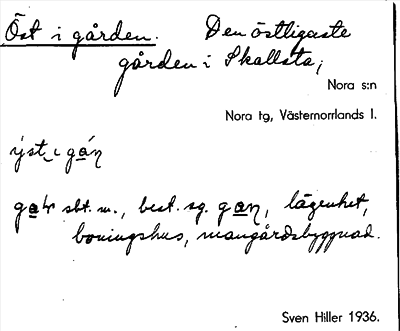 Öst i gården. Den östligaste
gården i Skallsta,
Nora s:n
Nora tg, Västernorrlands l.
sbt. m., best. sg. lägenhet,
boningshus, mangårdsbyggnad.
Sven Hiller 1936.